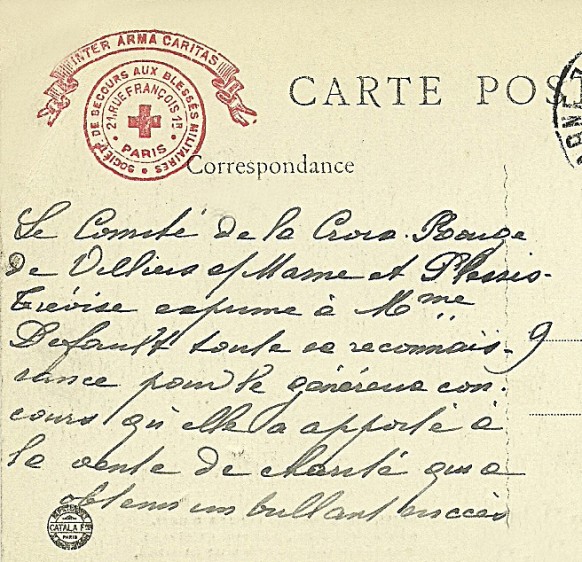 INTER ARMA CARITAS
SOCIÉTÉ DE SECOURS AUX BLESSÉS MILITAIRES
21 RUE FRANÇOIS 1ER
PARIS
CARTE POST
Correspondance
Le Comité de la Croix-Rouge
de Villiers s/Marne et Plessis-
Trévise exprime à Mme
Default toute sa reconnais-
sance pour le généreux con-
cours qu'elle a apporté à
la vente de charité qui a
obtenu un brillant succès
9
CATALA FRES
PARIS